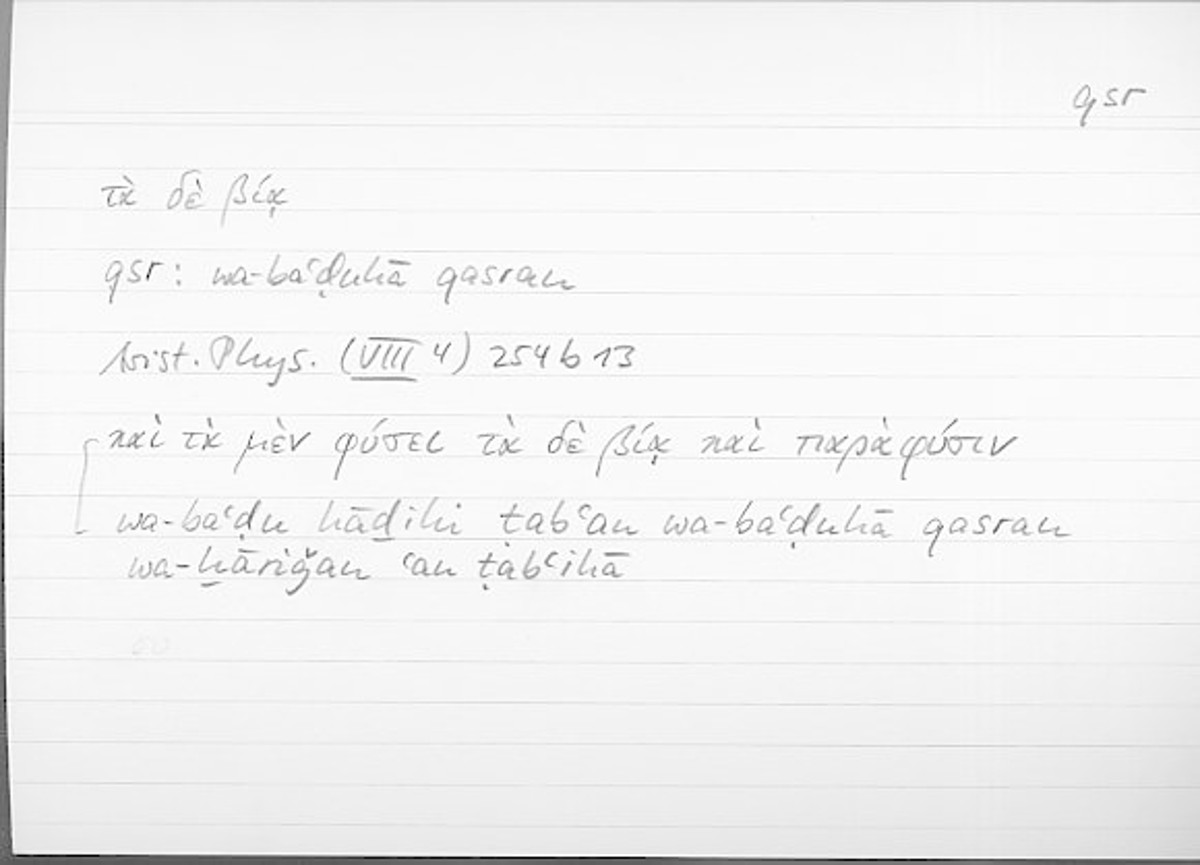 qsr
τὰ δὲ βίᾳ
qsr: wa-baʿḍuhā qasran
Arist. Phys. (VIII 4) 254b13
καὶ τὰ μὲν φύσει τὰ δὲ βίᾳ καὶ παρὰ φύσιν
wa-baʿḍu hāḏihi ṭabʿan wa-baʿḍuhā qasran
wa-ḫāriǧan ʿan ṭabʿihā